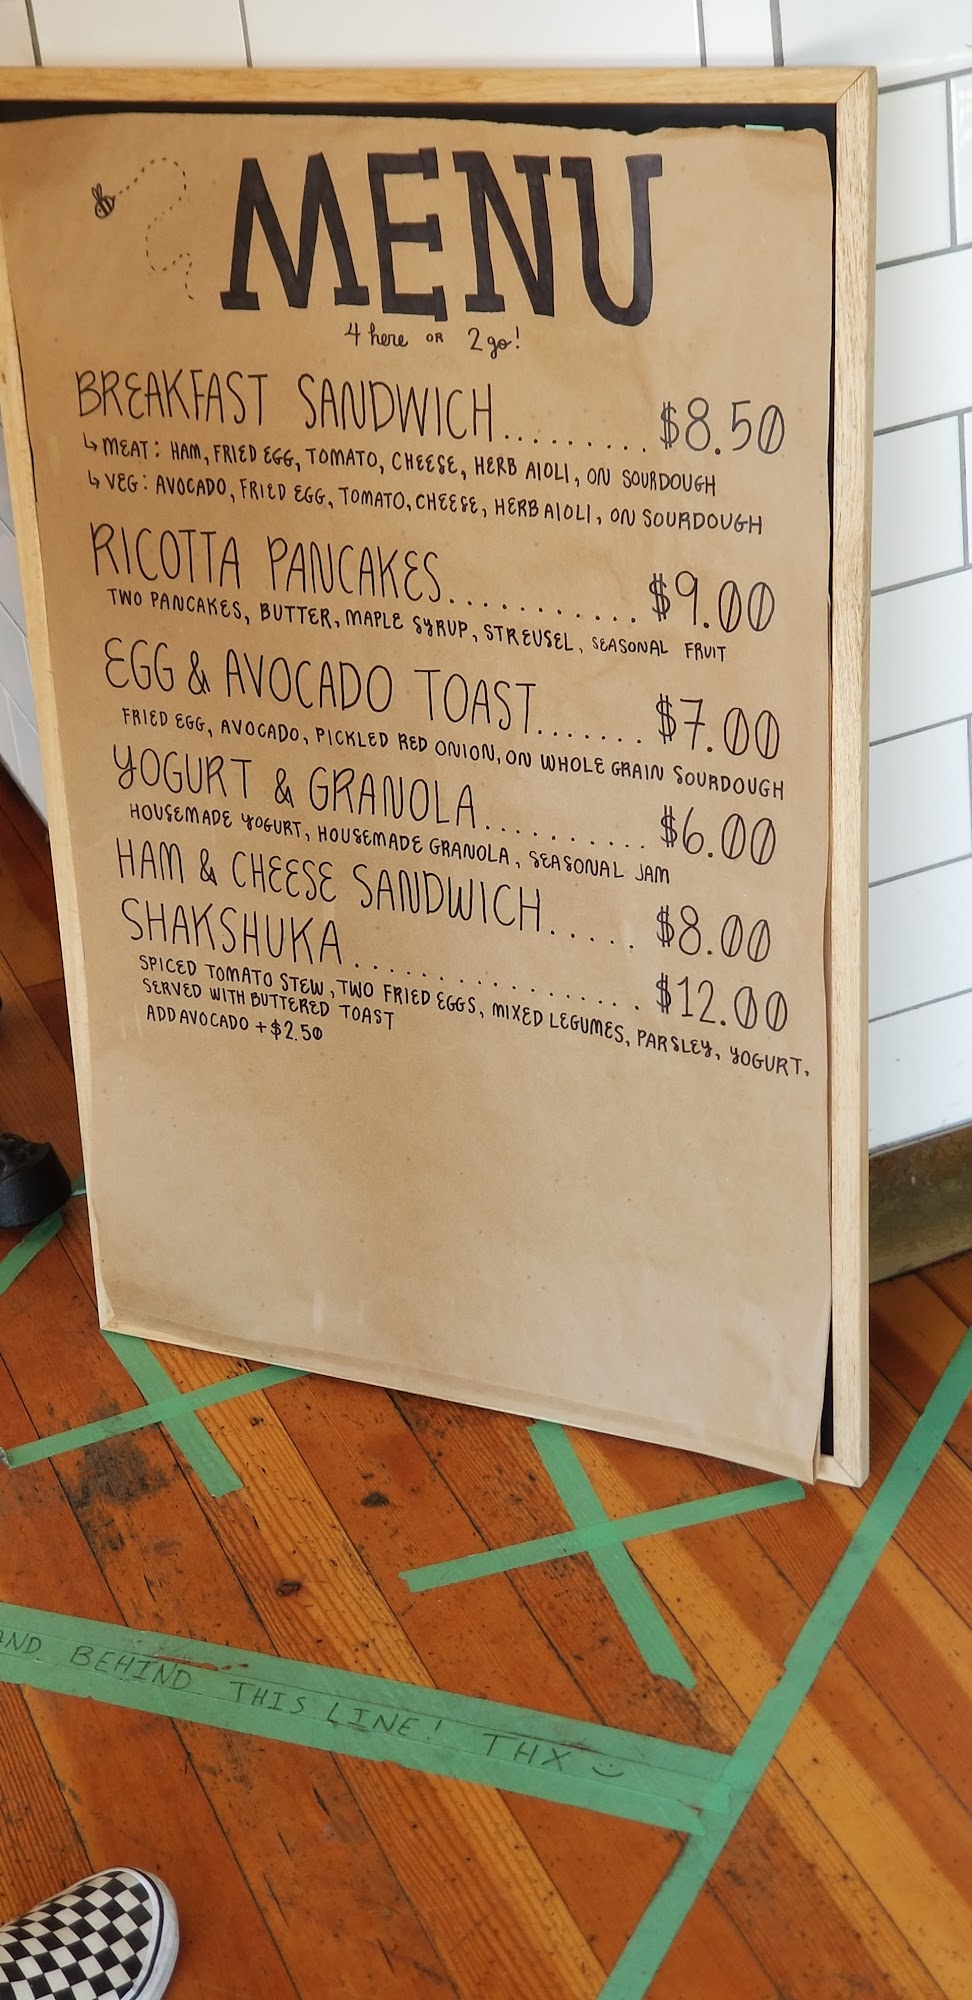 MENU
4 here OR 2 go!
BREAKFAST SANDWICH........ $8.50
↳ MEAT: HAM, FRIED EGG, TOMATO, CHEESE, HERB AIOLI, ON SOURDOUGH
↳ VEG: AVOCADO, FRIED EGG, TOMATO, CHEESE, HERB AIOLI, ON SOURDOUGH
RICOTTA PANCAKES.......... $9.00
TWO PANCAKES, BUTTER, MAPLE SYRUP, STREUSEL, SEASONAL FRUIT
EGG & AVOCADO TOAST....... $7.00
FRIED EGG, AVOCADO, PICKLED RED ONION, ON WHOLE GRAIN SOURDOUGH
YOGURT & GRANOLA.......... $6.00
HOUSEMADE YOGURT, HOUSEMADE GRANOLA, SEASONAL JAM
HAM & CHEESE SANDWICH..... $8.00
SHAKSHUKA................ $12.00
SPICED TOMATO STEW, TWO FRIED EGGS, MIXED LEGUMES, PARSLEY, YOGURT,
SERVED WITH BUTTERED TOAST
ADD AVOCADO + $2.50
BEHIND THIS LINE! THX